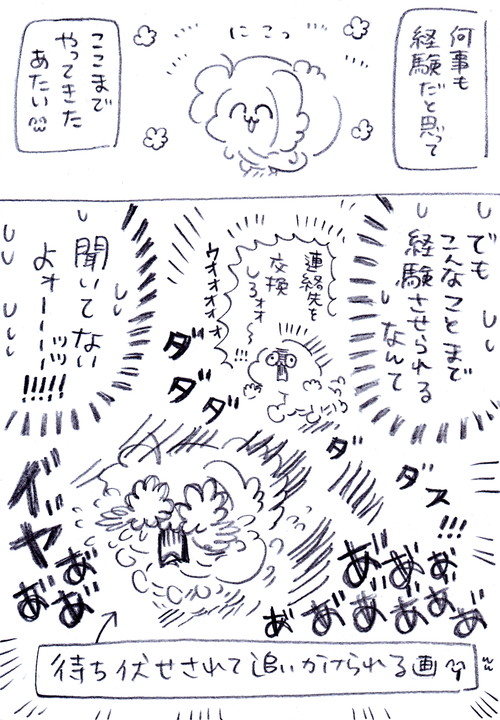 何事も
経験だと思って
にこっ
ここまで
やってきた
あたい
でも
こんなことまで
経験させられる
なんて
連絡先を
交換
しろォォ〜!!!
ウオオオオオ
ダダダダダダダダ
聞いてない
よォーーーッッ!!!!!
ダダダ
ダダス
!!!
イヤああああ
あああああああああ
待ち伏せされて追いかけられる画